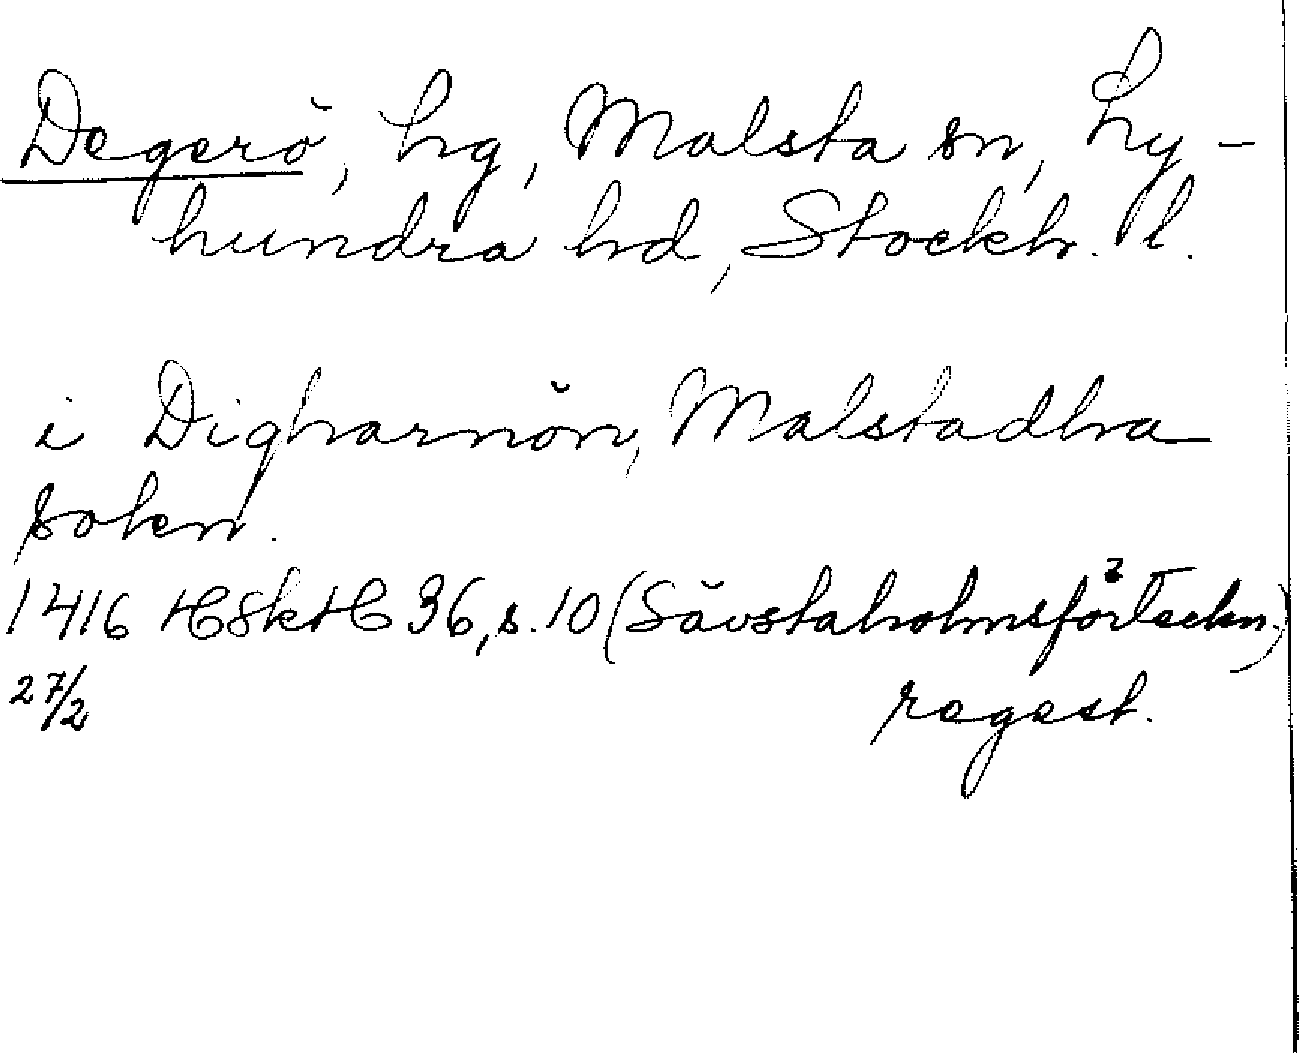 Degerö, hg, Malsta sn, Ly-
hundra hd, Stockh. l.
i Digharnön, Malstadha
sokn.
1416 HSkH 36, s. 10 (Sävstaholmsförteckn.)
27/2 regest.